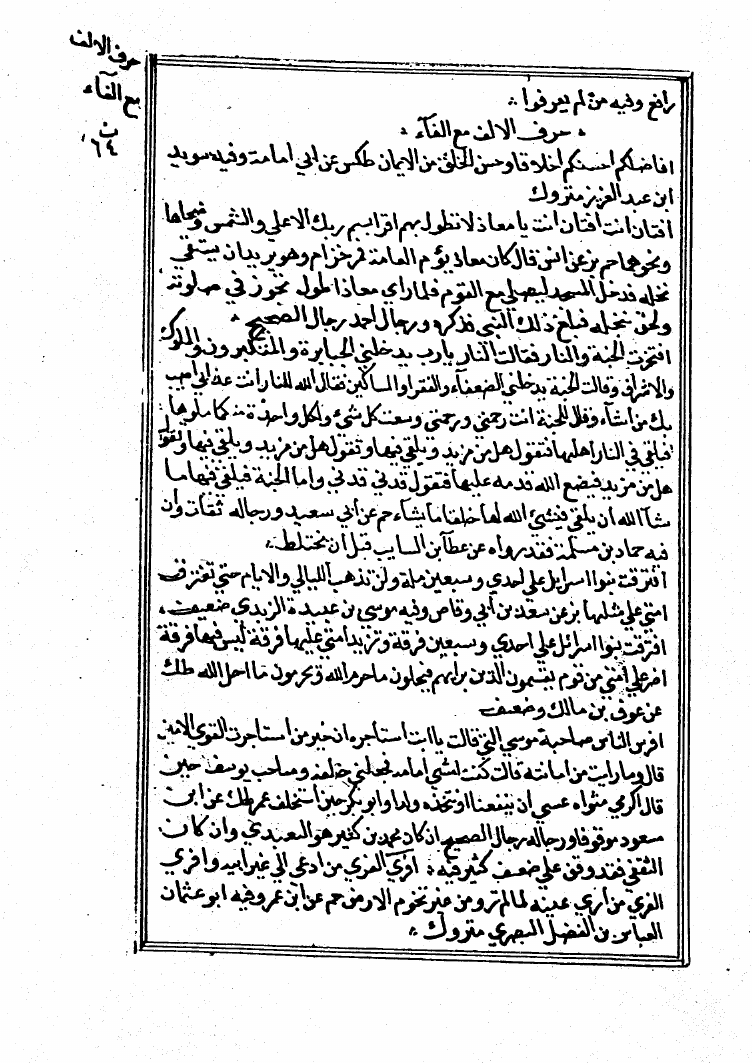 حرف الالف
مع الفآء
ث
٦٤
رافع وفيه من لم يعرفوا
حرف الالف مع الفآء
افاضلكم احسنكم اخلاقا وحسن الخلق من الايمان طكس عن ابي امامة وفيه سويد
ابن عبد العزيز متروك
افتان انت افتان انت يا معاذ لا تطول بهم اقرا بسم ربك الاعلي والشمس وضحاها
ونحوهما حم بز عن انس قال كان معاذ يؤم العامة فمر حزام وهو يريدان يستقي
نخله فدخل المسجد ليصلي مع القوم فلما راي معاذا طول تجوز في صلوته
ولحق بنخله فبلغ ذلك النبي فذكره ورجال احمد رجال الصحيح
افتخرت الجنة والنار فقالت النار يارب يدخلني الجبابرة والمتكبرون والملوك
والاشراف وقالت الجنة يدخلني الضعفآء والفقرا والمساكين فقال الله للنار انت عذابي اصيب
بك من اشآء وقال للجنة انت رحمتي ورحمتي وسعت كل شيء ولكل واحدة منكما ملوها
فيلقي في النار اهلها فتقول هل من مزيد ويلقي فيها وتقول هل من مزيد ويلقي فيها وتقول
هل من مزيد فيضع الله قدمه عليها فتقول قدني قدني واما الجنة فيلقي فيها ما
شآ الله ان يلقي فينشيء الله لها خلقا ما يشاء حم عن ابي سعيد ورجاله ثقات وان
فيه حماد بن سلمة فقد رواه عن عطآ بن السايب قبل ان يختلط
افترقت بنوا اسرايل علي احدي وسبعين ملة ولن تذهب الليالي والايام حتي تفترق
امتي علي مثلها بز عن سعد بن ابي وقاص وفيه موسي بن عبيدة الربذي ضعيف
افترقت بنوا اسرائل علي احدي وسبعين فرقة وتزيد امتي عليها فرقة ليس فيها فرقة
اضر علي امتي من قوم يقيسون الذين برايهم فيحلون ما حرم الله ويحرمون ما احل الله طك
عن عوف بن مالك وضعيف
افرس الناس صاحبة موسي التي قالت يا ابت استاجره ان خير من استاجرت القوي الامين
قال وما رايت من امانته قالت كنت امشي امامه فجعلني خلفه وصاحب يوسف حين
قال اكرمي مثواه عسي ان ينفعنا او نتخذه ولدا وابو بكر حين استخلف عمر طك عن ابن
مسعود موقوفا ورجاله رجال الصحيح ان كان محمد بن كثير هو العبدي وان كان
الثقفي فقد وثق علي ضعف كثير فيه افري الفري من ادعي الي غير ابيه وافري
الفري من اري عينه لما لم تر ومن غير تخوم الارض حم عن ابن عمر وفيه ابو عثمان
العباس بن الفضل البصري متروك